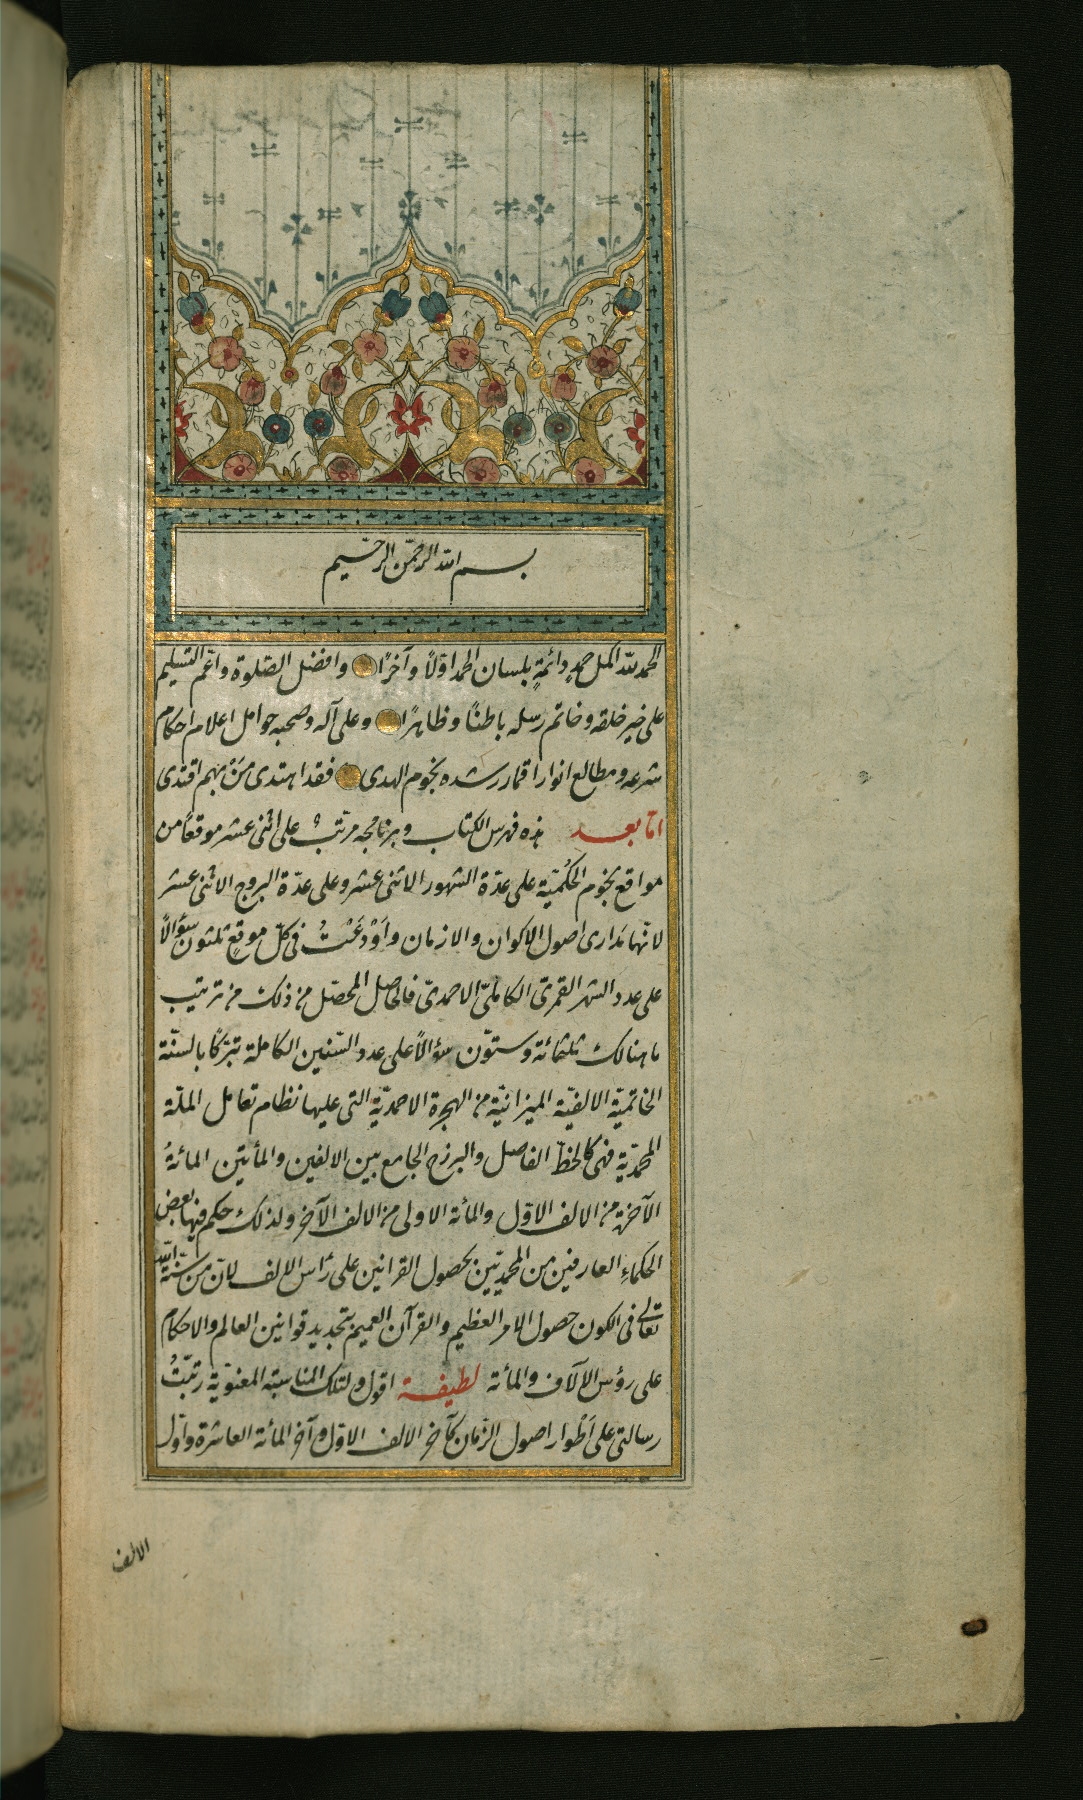 بسم الله الرحمن الرحيم
الحمد لله اكمل حمدٍ دائمةٍ بلسان الحمد اوّلاً وآخرًا وافضل الصّلوة واتمّ التسليم
على خير خلقه وخاتم رسله باطنًا وظاهرًا وعلى آله وصحبه حوامل اعلام احكام
شرعه ومطالع انوار اقمار رشده نجوم الهدى فقد اهتدى مَنْ بهم اقتدى
امّا بعد هذه فهرس الكتاب وبرنامجه مرتّبٌ على اثنى عشر موقعًا من
مواقع نجوم الحُكْميّة على عدّة الشهور الاثنى عشر وعلى عدّة البروج الاثنى عشر
لانّها مَدارى اصول الاكوان والازمان واَوْدَعْتُ فى كلّ موقعٍ ثلثون سؤالاً
على عدد الشهر القمرىّ الكاملىّ الاحمدىّ فالحاصل المحصّل من ذلك من ترتيب
ما هنالك ثلثمائة وستّون سؤالاً على عدد السّنين الكاملة تبرّكًا بالسنّة
الخاتميّة الالفيّة الميزانيّة من الهجرة الاحمديّة التى عليها نظام تعامل الملّة
المحمّديّة فهى كالخطّ الفاصل والبرزخ الجامع بين الالفين والمأتين المائة
الآخرة من الالف الاوّل والمأة الاولى من الالف الآخر ولذلك حكم فيها بعض
الحكماء العارفين من المحمديّين بحصول القرانين على رأس الالف لانّ من سنّة الله
تعالى فى الكون حصول الامر العظيم والقرآن العميم بتجديد قوانين العالم والاحكام
على رؤس الآلاف والمأة لطيفة اقول ولتلك المناسبة المعنويّة رتّبتُ
رسالتى على اَطْوار اصول الزّمان كآخر الالف الاوّل وآخر المائة العاشرة واوّل
الالف